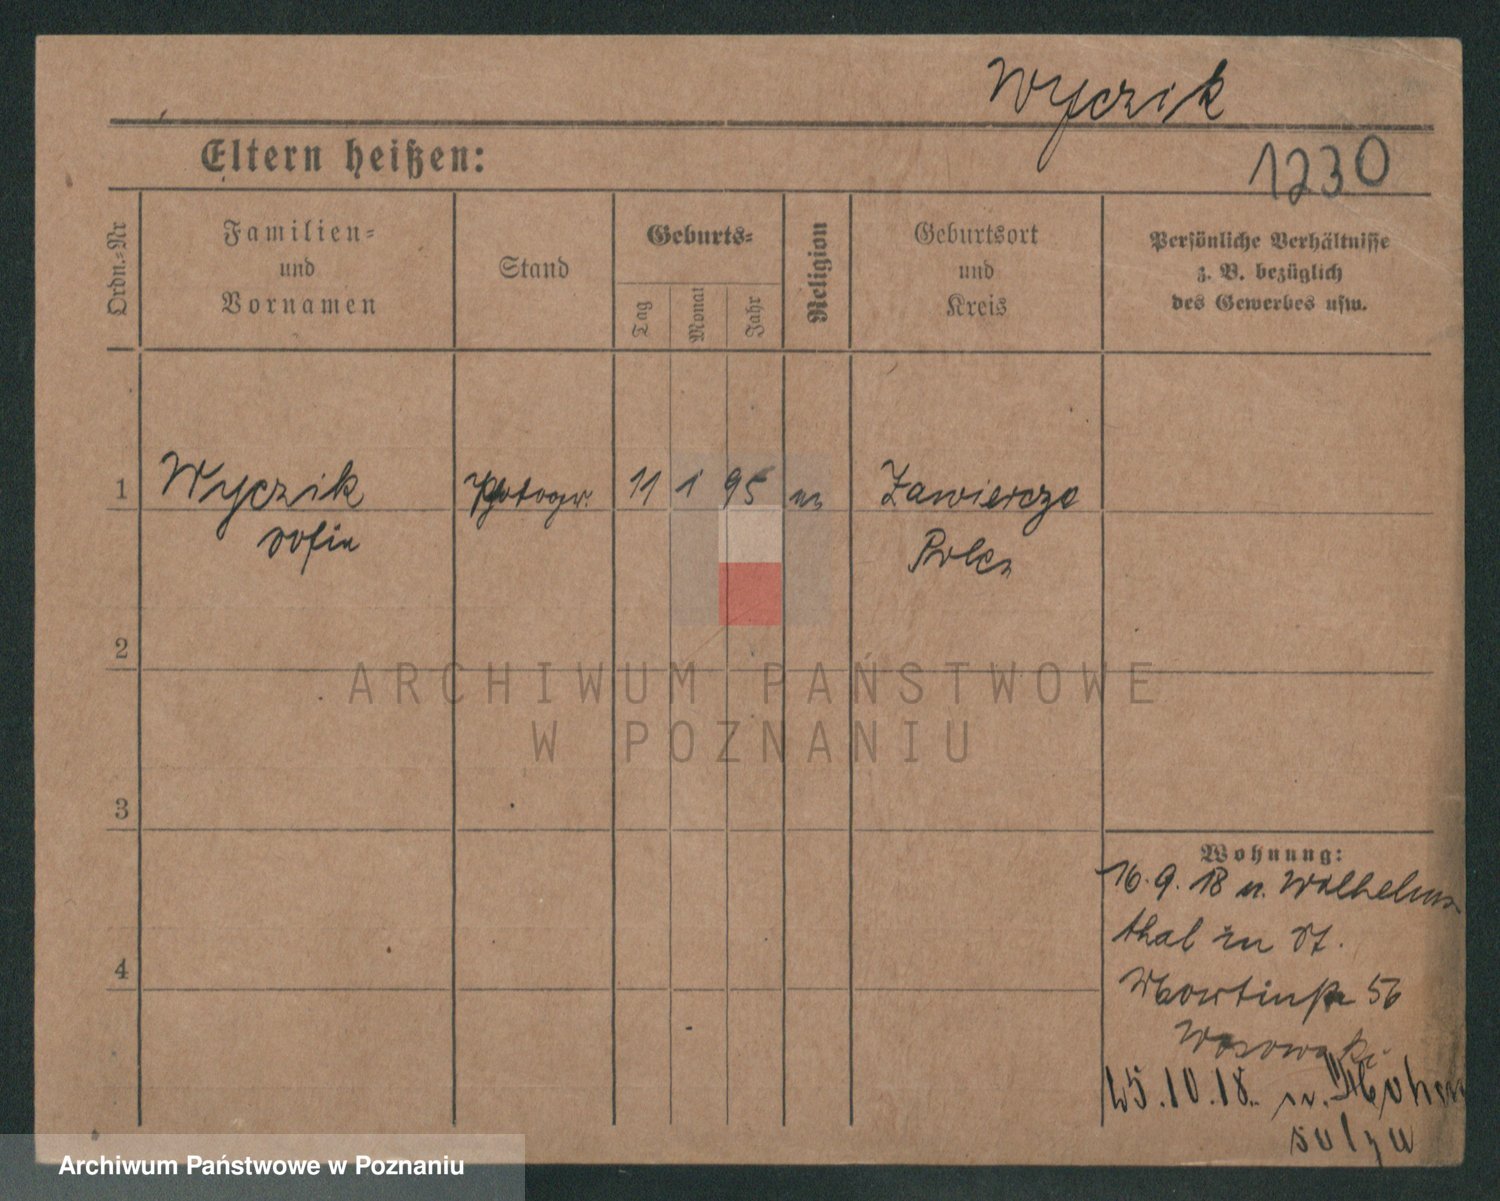 Wyczik
Eltern heißen:
1230
Ordn.-Nr
Familien-
und
Vornamen
Stand
Geburts-
Tag
Monat
Jahr
Religion
Geburtsort
und
Kreis
Persönliche Verhältnisse
z. B. bezüglich
des Gewerbes usw.
1 Wyczik Photogr. 11 1 95 Zawiercze
Sofie Polen
2
3
4
Wohnung:
16.9.18 n. Wilhelms
thal zu St.
Martinstr 56
25.10.18. n. Hohen
salza
ARCHIWUM PAŃSTWOWE
W POZNANIU
Archiwum Państwowe w Poznaniu